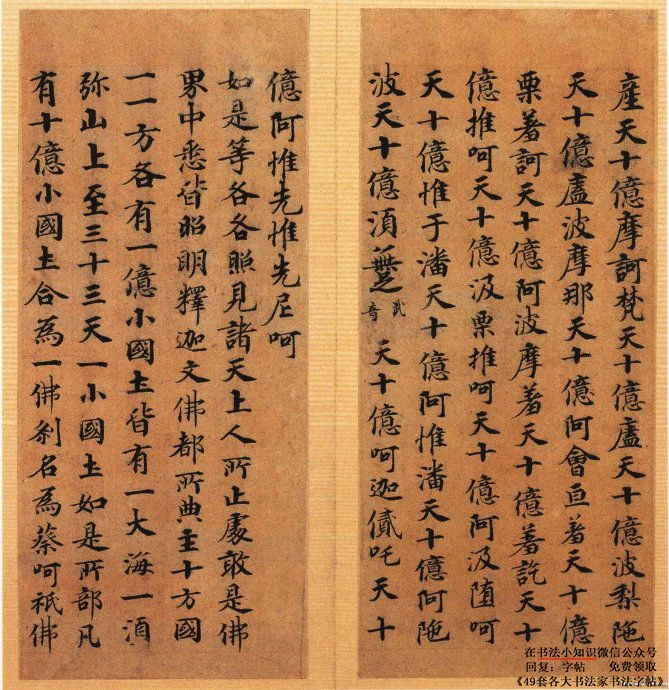 産天十億摩訶梵天十億盧天十億波梨陁
天十億盧波摩那天十億阿會亘著天十億
栗著訶天十億阿波摩著天十億著訖天十
億推呵天十億汲栗推呵天十億阿汲堕呵
天十億惟于潘天十億阿惟潘天十億阿陁
波天十億湏 武音 天十億呵迦貳吒天十
億阿惟先惟先尼呵
如是等各各照見諸天上人所止處敢是佛
界中悉皆昭明釋迦文佛都所典主十方國
一一方各有一億小國土皆有一大海一湏
弥山上至三十三天一小國土如是所部凡
有十億小國土合為一佛刹名為蔡呵祇佛
在书法小知识微信公众号
回复：字帖 免费领取
《49套各大书法家书法字帖》